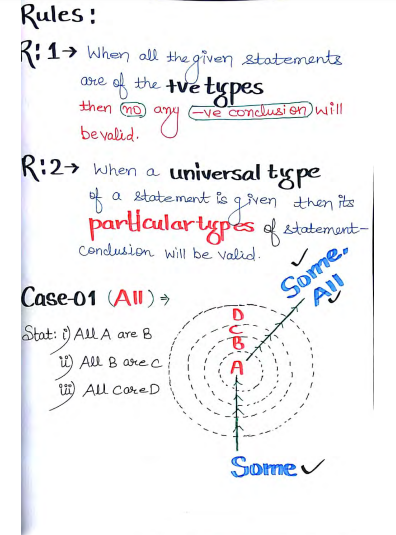 Rules :
R:1→ When all the given statements
are of the +ve types
then no any -ve conclusion will
be valid.
R:2→ When a universal type
of a statement is given then its
particular types of statement-
conclusion will be valid.
Case-01 (All) ⇒
Stat: i) All A are B
ii) All B are C
iii) All C are D
✓
Some,
All
✓
D
C
B
A
Some ✓